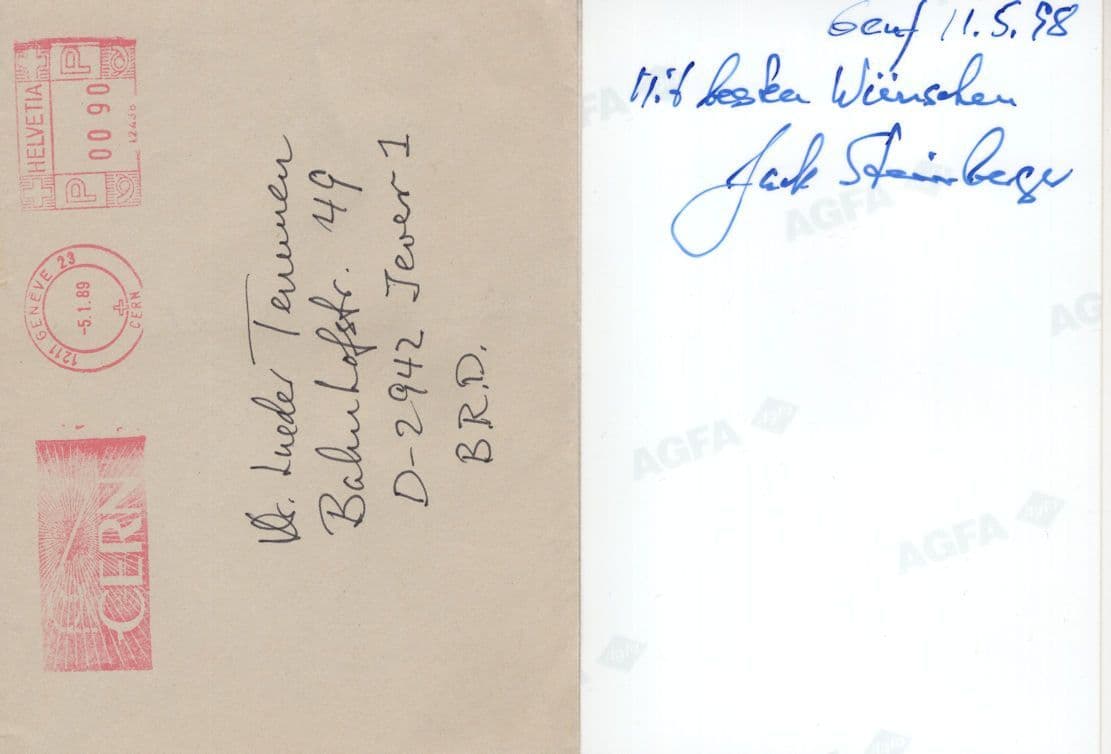 HELVETIA
P 0090 P
12436
1211 GENÈVE 23
-5.1.89
CERN
CERN
Lueder Temmen
Bahnhofstr. 49
D-2942 Jever 1
B.R.D.
Genf 11.5.98
Mit besten Wünschen
Jack Steinberger
AGFA
AGFA
AGFA
AGFA
AG